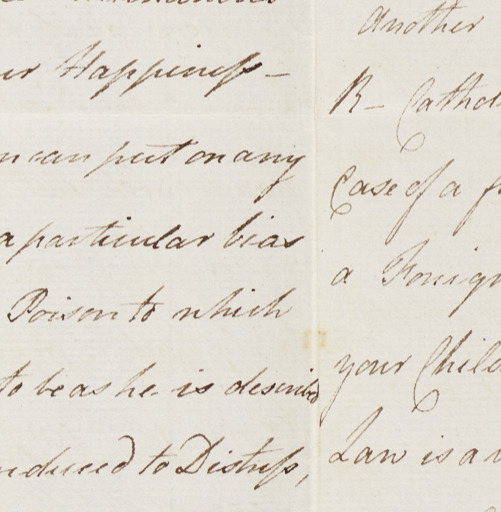 Happiness –
can put on any
a particular bias
Poison to which
to be as he is described
reduced to Distress,
Another
R – Cathol
Case of a f
a Foreign
your Child
Law is a